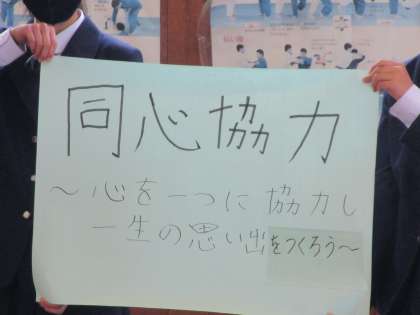 同心協力
～心を一つに協力し
一生の思い出をつくろう～